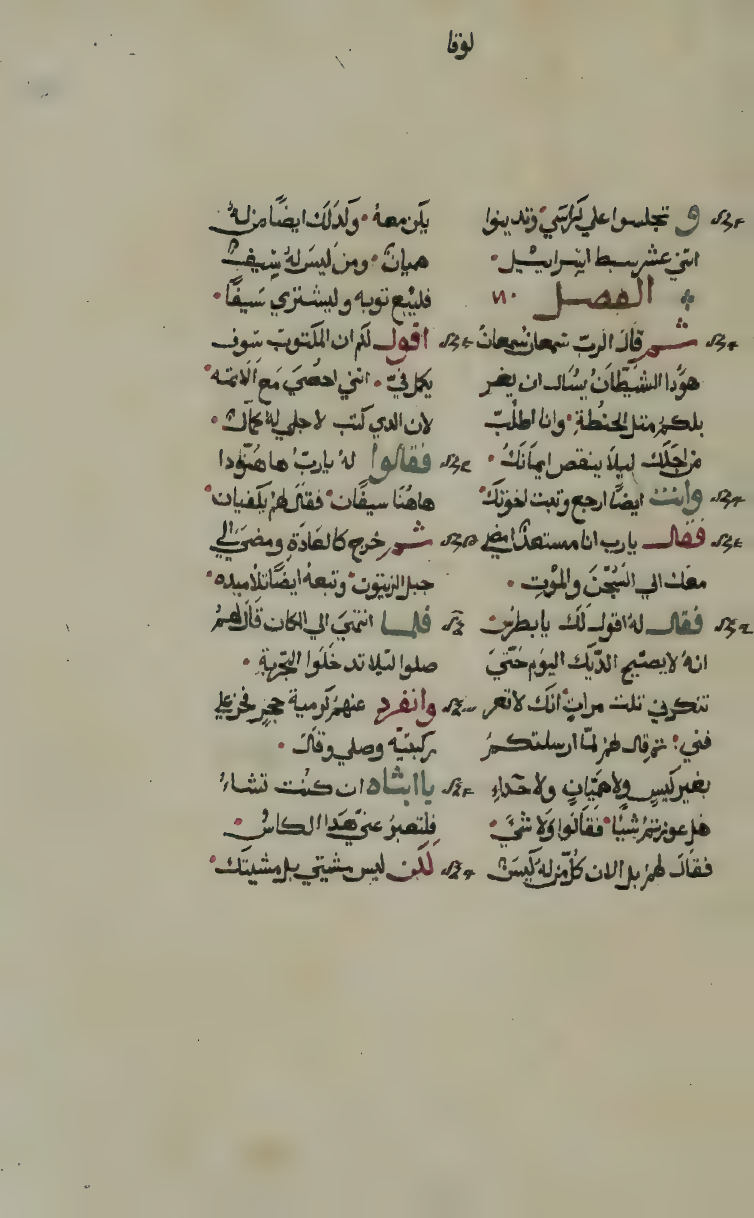 لوقا
و تجلسوا علي كراسي وتدينوا
اثني عشر سبط اسراييل
الفصل
ثم قال الرب سمعان سمعان
هوذا الشيطان يسال ان يغر
بلكم مثل الحنطة وانا اطلب
من اجلك ليلا ينقص ايمانك
وانت ايضا ارجع وتبت اخوتك
فقال يارب انا مستعد امضي
معك الي السجن والموت
فقال له اقول لك يا بطرس
انه لا يصيح الديك اليوم حتي
تنكرني تلت مرات انك لا تعر
فني ثم قال لهم لما ارسلتكم
بغير كيس ولا هميان ولا حداء
هل عوزتم شيا فقالوا ولا شي
فقال لهم بل الان كل من له كيس
يكن معه ولدلك ايضا من له
هميان ومن ليس له سيف
فليبع توبه وليشتري سيفا
اقول لكم ان المكتوب سوف
يكمل في انني احصي مع الاتمه
لان الدي كتب لاجلي له كمال
فقالوا له يارب ها هودا
هاهنا سيفان فقال لهم يكفيان
ثم خرج كالعادة ومضي الي
جبل الزيتون وتبعه ايضا تلاميده
فلما انتهي الي المكان قال لهم
صلوا ليلا تدخلوا التجربة
وانفرد عنهم كرمية حجر فخر علي
ركبتيه وصلي وقال
يا ابتاه ان كنت تشاء
فلتعبر عني هدا الكاس
لكن ليس مشيتي بل مشيتك